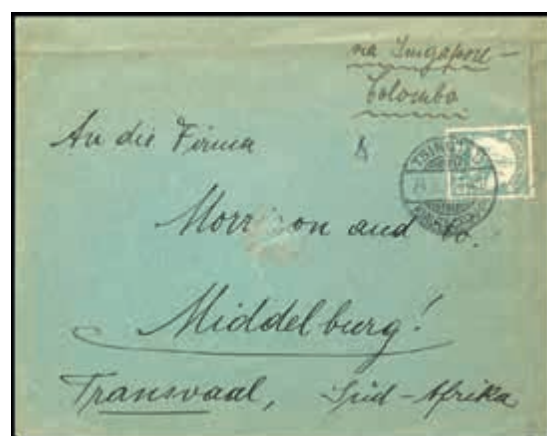 via Singapore –
Colombo
An die Firma
Morrison and Co.
Middelburg!
Transvaal, Süd-Afrika
TSINGTAU